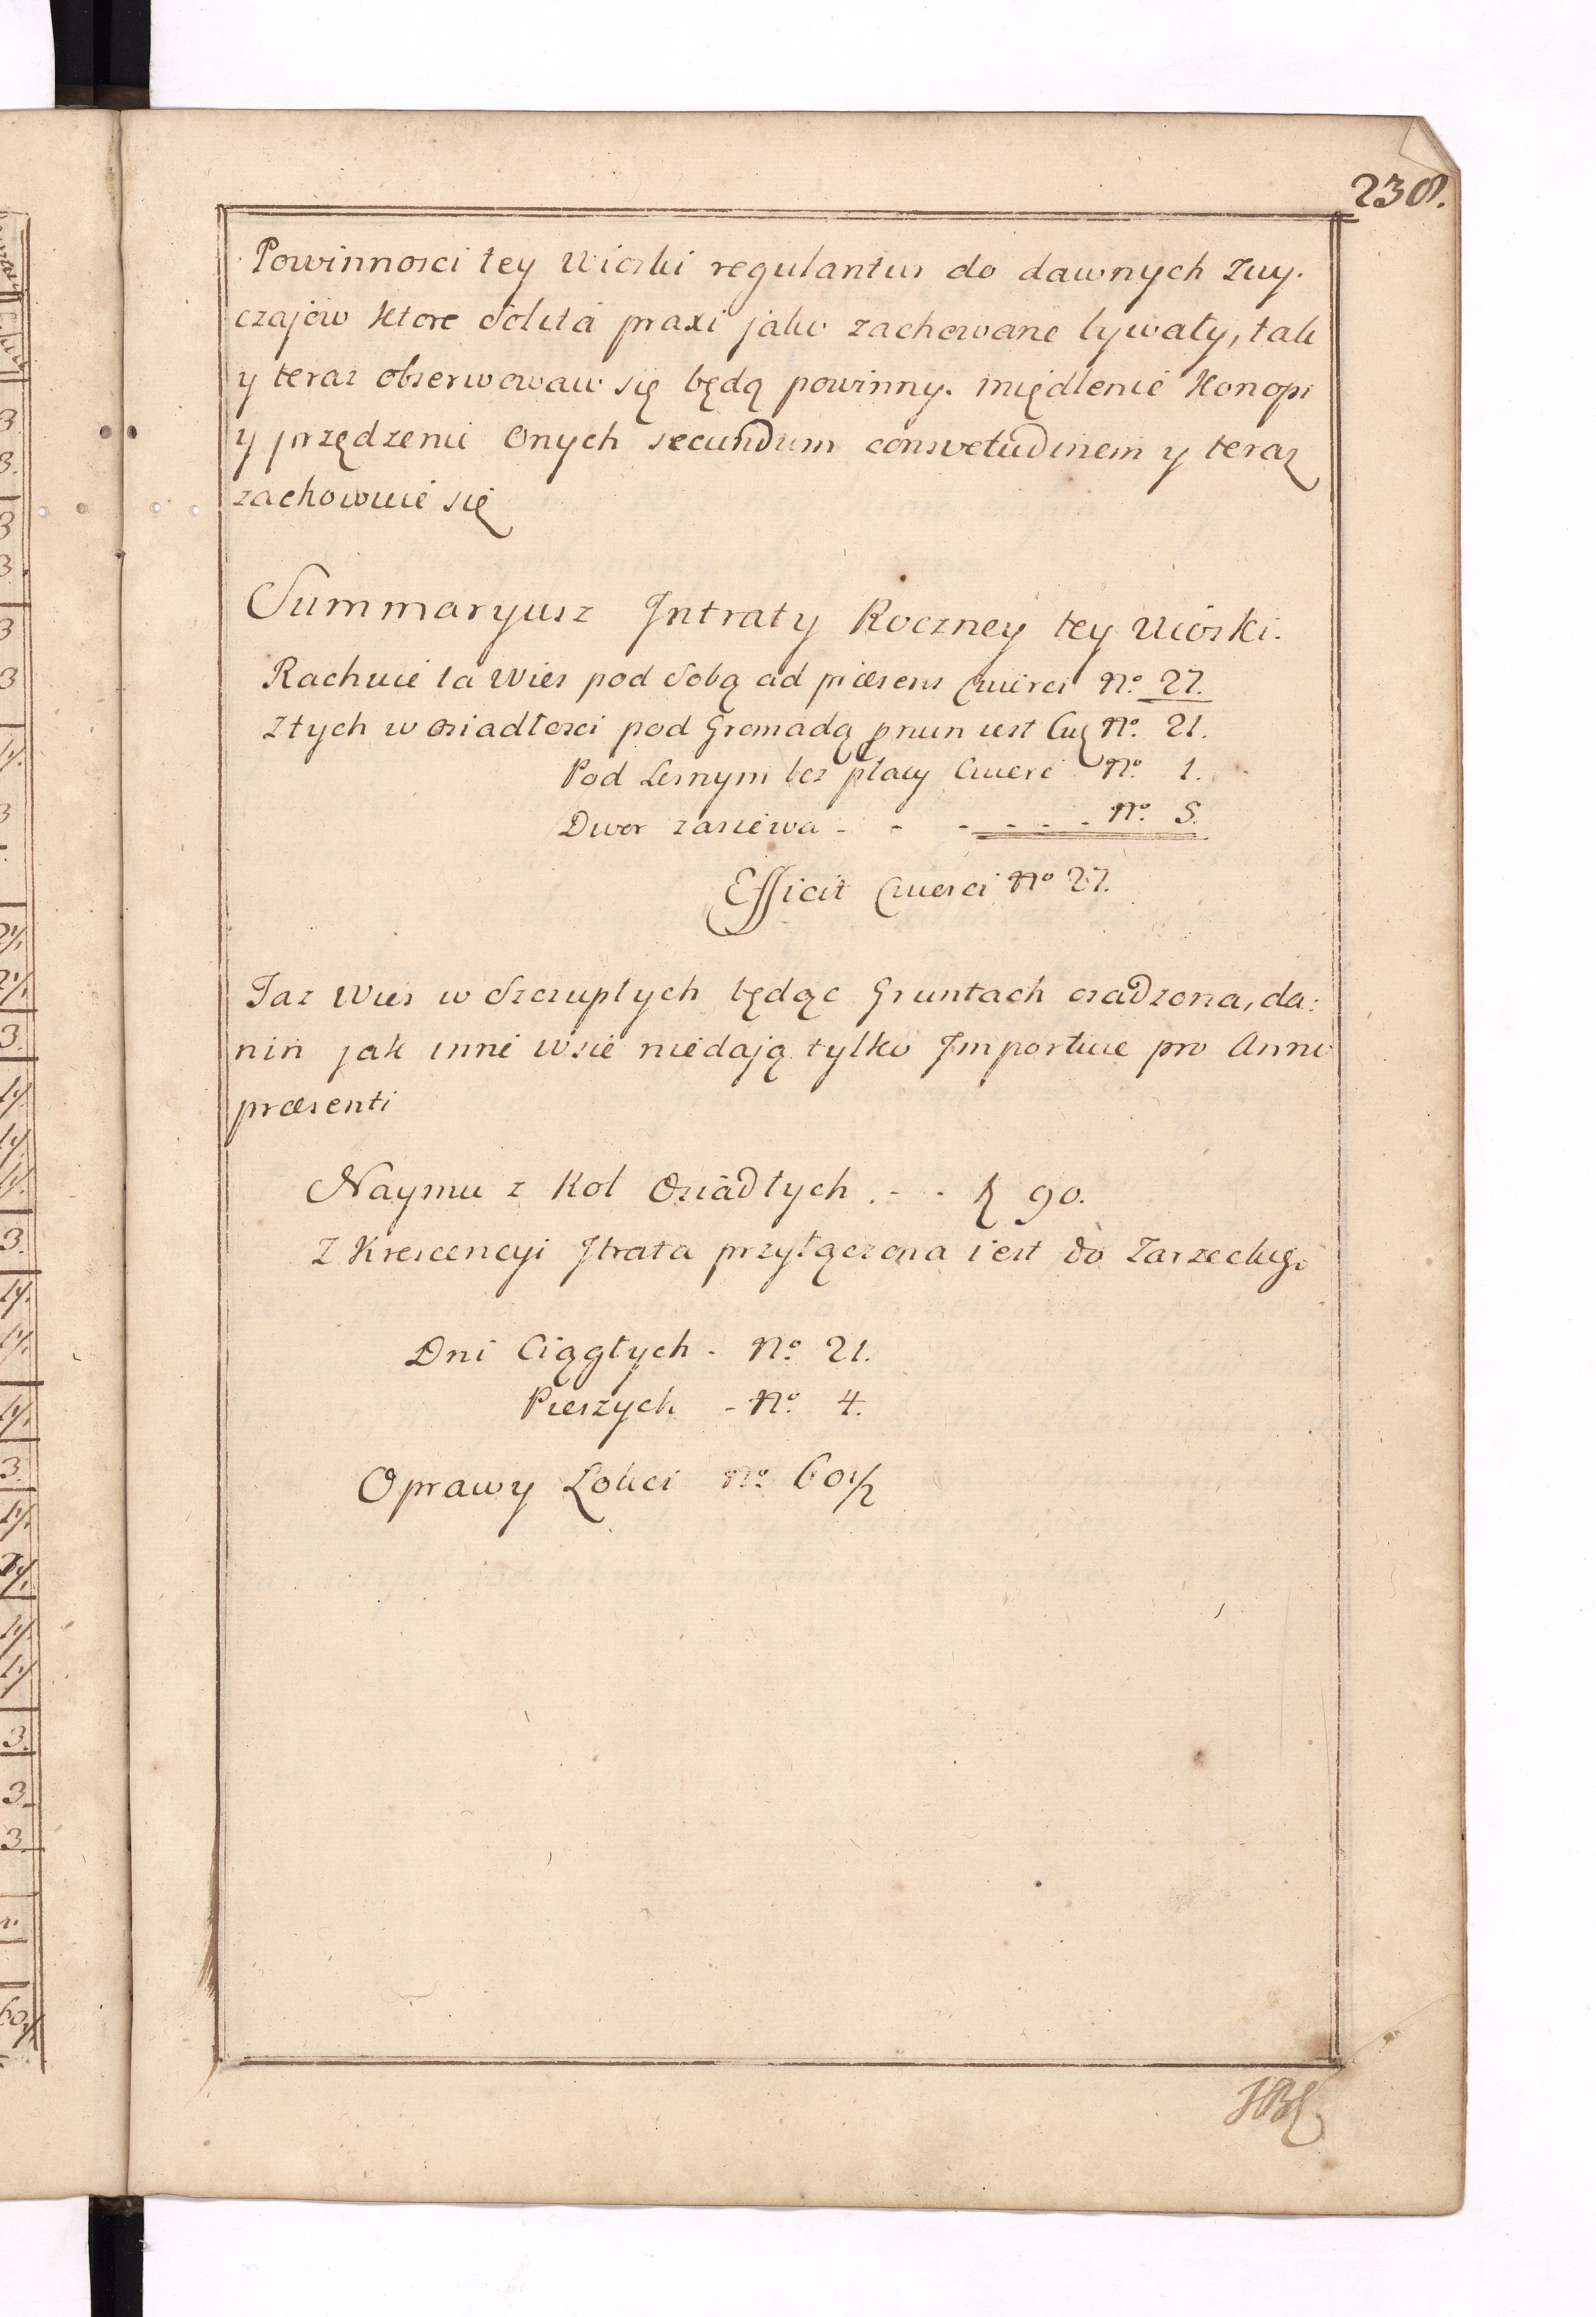 230.
Powinnosci tey Wioski regulantur do dawnych Zwy.
czajów ktore Solita praxi jako zachowane bywały, tak
y teraz obserwować się będą powinny. międlenie Konopi
y przędzenie Onych secundum consvetudinem y teraz
zachowuie się
Summaryusz Intraty Roczney tey Wioski.
Rachuie ta Wies pod Sobą ad præsens Cwierci No. 27.
Ztych w osiadłosci pod Gromadą pnun iest Cwę No. 21.
Pod Lesnym bez płacy Cwierc No. 1.
Dwor zasiewa - - - - - - No. 5.
Efficit Cwierci No 27.
Taz Wies w Szczupłych będąc Gruntach osadzona, da:
nin jak inne wsie niedają tylko Importuie pro Anno
præsenti
Naymu z Rol Osiadłych . - . 90.
Z Krescencyi Jtrata przyłączona iest do Zarzeckigo
Dni Ciągłych - No. 21.
Pieszych - No. 4.
Oprawy Łokci No. 60 1/2